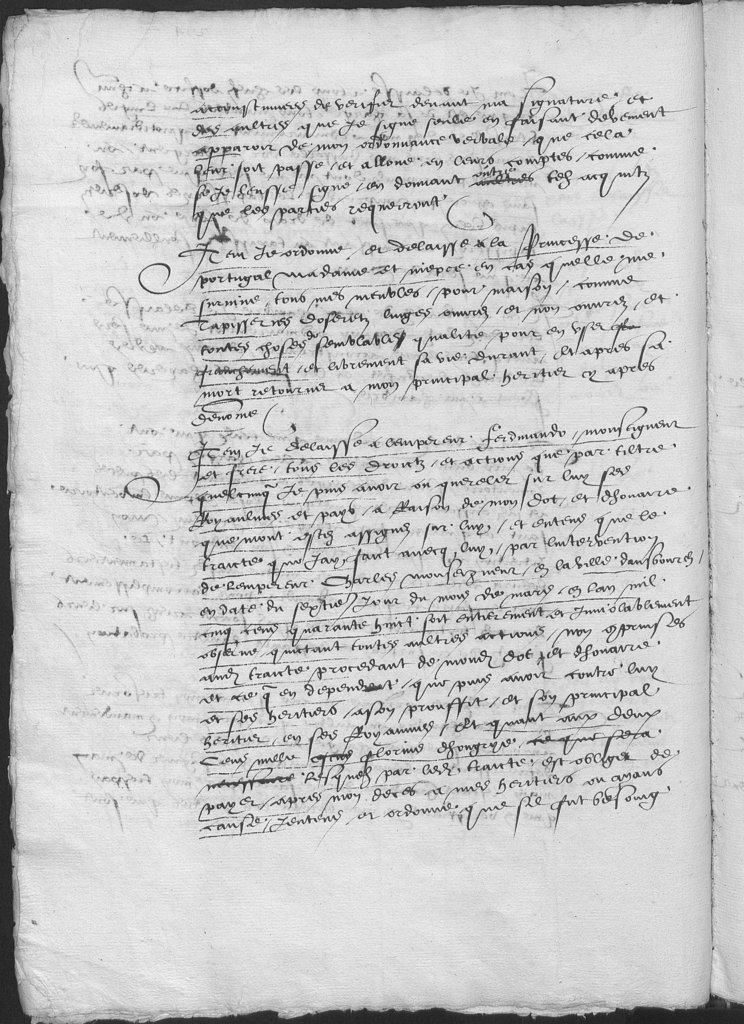 accoustumees de verifier devant ma signature, et
des aultres que Je signe seulle en faisant deuement
apparoir de mon ordonnance verbale, que cela
leur soit passe, et alloue en leurs comptes, comme
se Je leusse signe, en donnant oultre telz acquitz
que les parties requerront
Item Je ordonne, et delaisse a la Princesse de
portugal madame et niepce en cas quelle me
survive, tous mes meubles, pour maison, comme
Tapisseries dosserets linges ouvrez, et non ouvrez, et
toutes choses de semblable qualite pour en user
franchement, et librement sa vie durant, Et apres sa
mort retourner a mon principal heritier cy apres
denome
Item Je delaisse a lempereur Ferdinando, monseigneur
et frere, tous les droictz, et actions que par tiltre
quelcunq Je puis avoir ou quereler sur luy ses
Royaulmes et pays, a Raison de mon dot, et dhouaire
que mont estez assignez sur luy, et entens que le
traicte que Jay faict avecq luy, par lintervention
de lempereur Charles monseigneur, en la ville dausbourg,
en date du sextie Jour du mois de mars, en lan mil
cinq cens quarante huict soit entierement et inviolablement
observe, quictant toutes aultres actions, non comprinses
audt traicte procedant de mondt dot, et dhouaire
et ce q en dependent, que puis avoir contre luy
et ses heritiers, a son prouffit, et son principal
heritier, en ses Royaumes, Et quant aux deux
Cens mille florins dhongrye, ce que sera
necessaire lesquelz par ledt traicte, est oblige de
payer, apres mon deces a mes heritiers ou ayans
cause, Jentens, et ordonne, que sil fut besoing